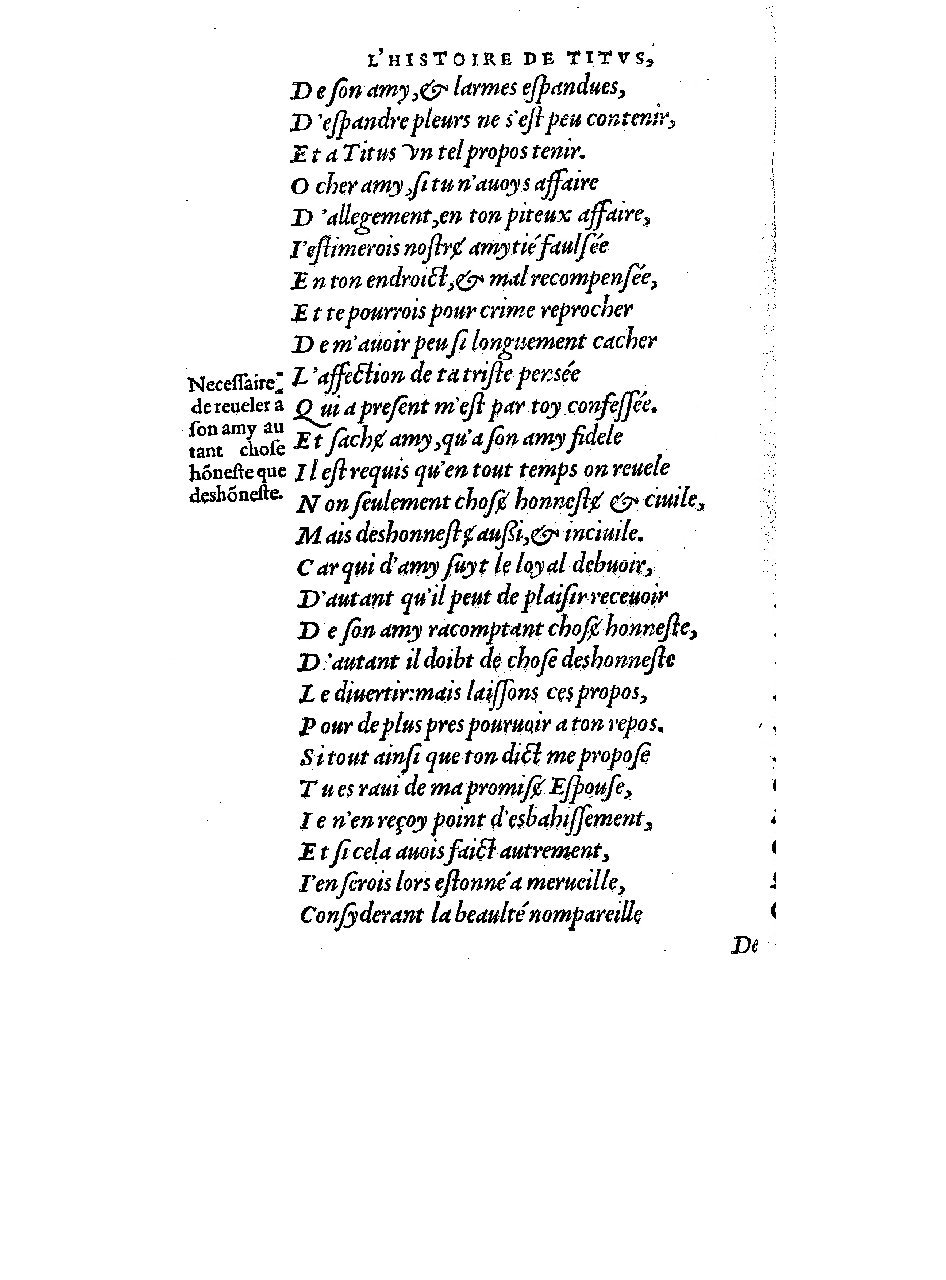 L'HISTOIRE DE TITVS,
De ſon amy, & larmes eſpandues,
D'eſpandre pleurs ne s'eſt peu contenir,
Et a Titus vn tel propos tenir.
O cher amy, ſi tu n'auoys affaire
D'allegement, en ton piteux affaire,
I'eſtimerois noſtrɇ amytié faulſée
En ton endroict, & mal recompenſée,
Et te pourrois pour crime reprocher
De m'auoir peu ſi longuement cacher
L'affection de ta triſte pensée
Qui a preſent m'eſt par toy confeſſée.
Et ſachɇ amy, qu'a ſon amy fidele
Il eſt requis qu'en tout temps on reuele
Non ſeulement choſɇ honneſtɇ & ciuile,
Mais deshonneſtɇ auſſi, & inciuile.
Car qui d'amy ſuyt le loyal debuoir,
D'autant qu'il peut de plaiſir receuoir
De ſon amy racomptant choſɇ honneſte,
D'autant il doibt de choſe deshonneſte
Le diuertir: mais laiſſons ces propos,
Pour de plus pres pouruoir a ton repos.
Si tout ainſi que ton dict me propoſe
Tu es raui de ma promiſɇ Eſpouſe,
Ie n'en reçoy point d'esbahiſſement,
Et ſi cela auois faict autrement,
I'en ſerois lors eſtonné a merueille,
Conſyderant la beaulté nompareille
De
Neceſſaire
de reueler a
ſon amy au
tant choſe
hõneſte que
deshõneſte.